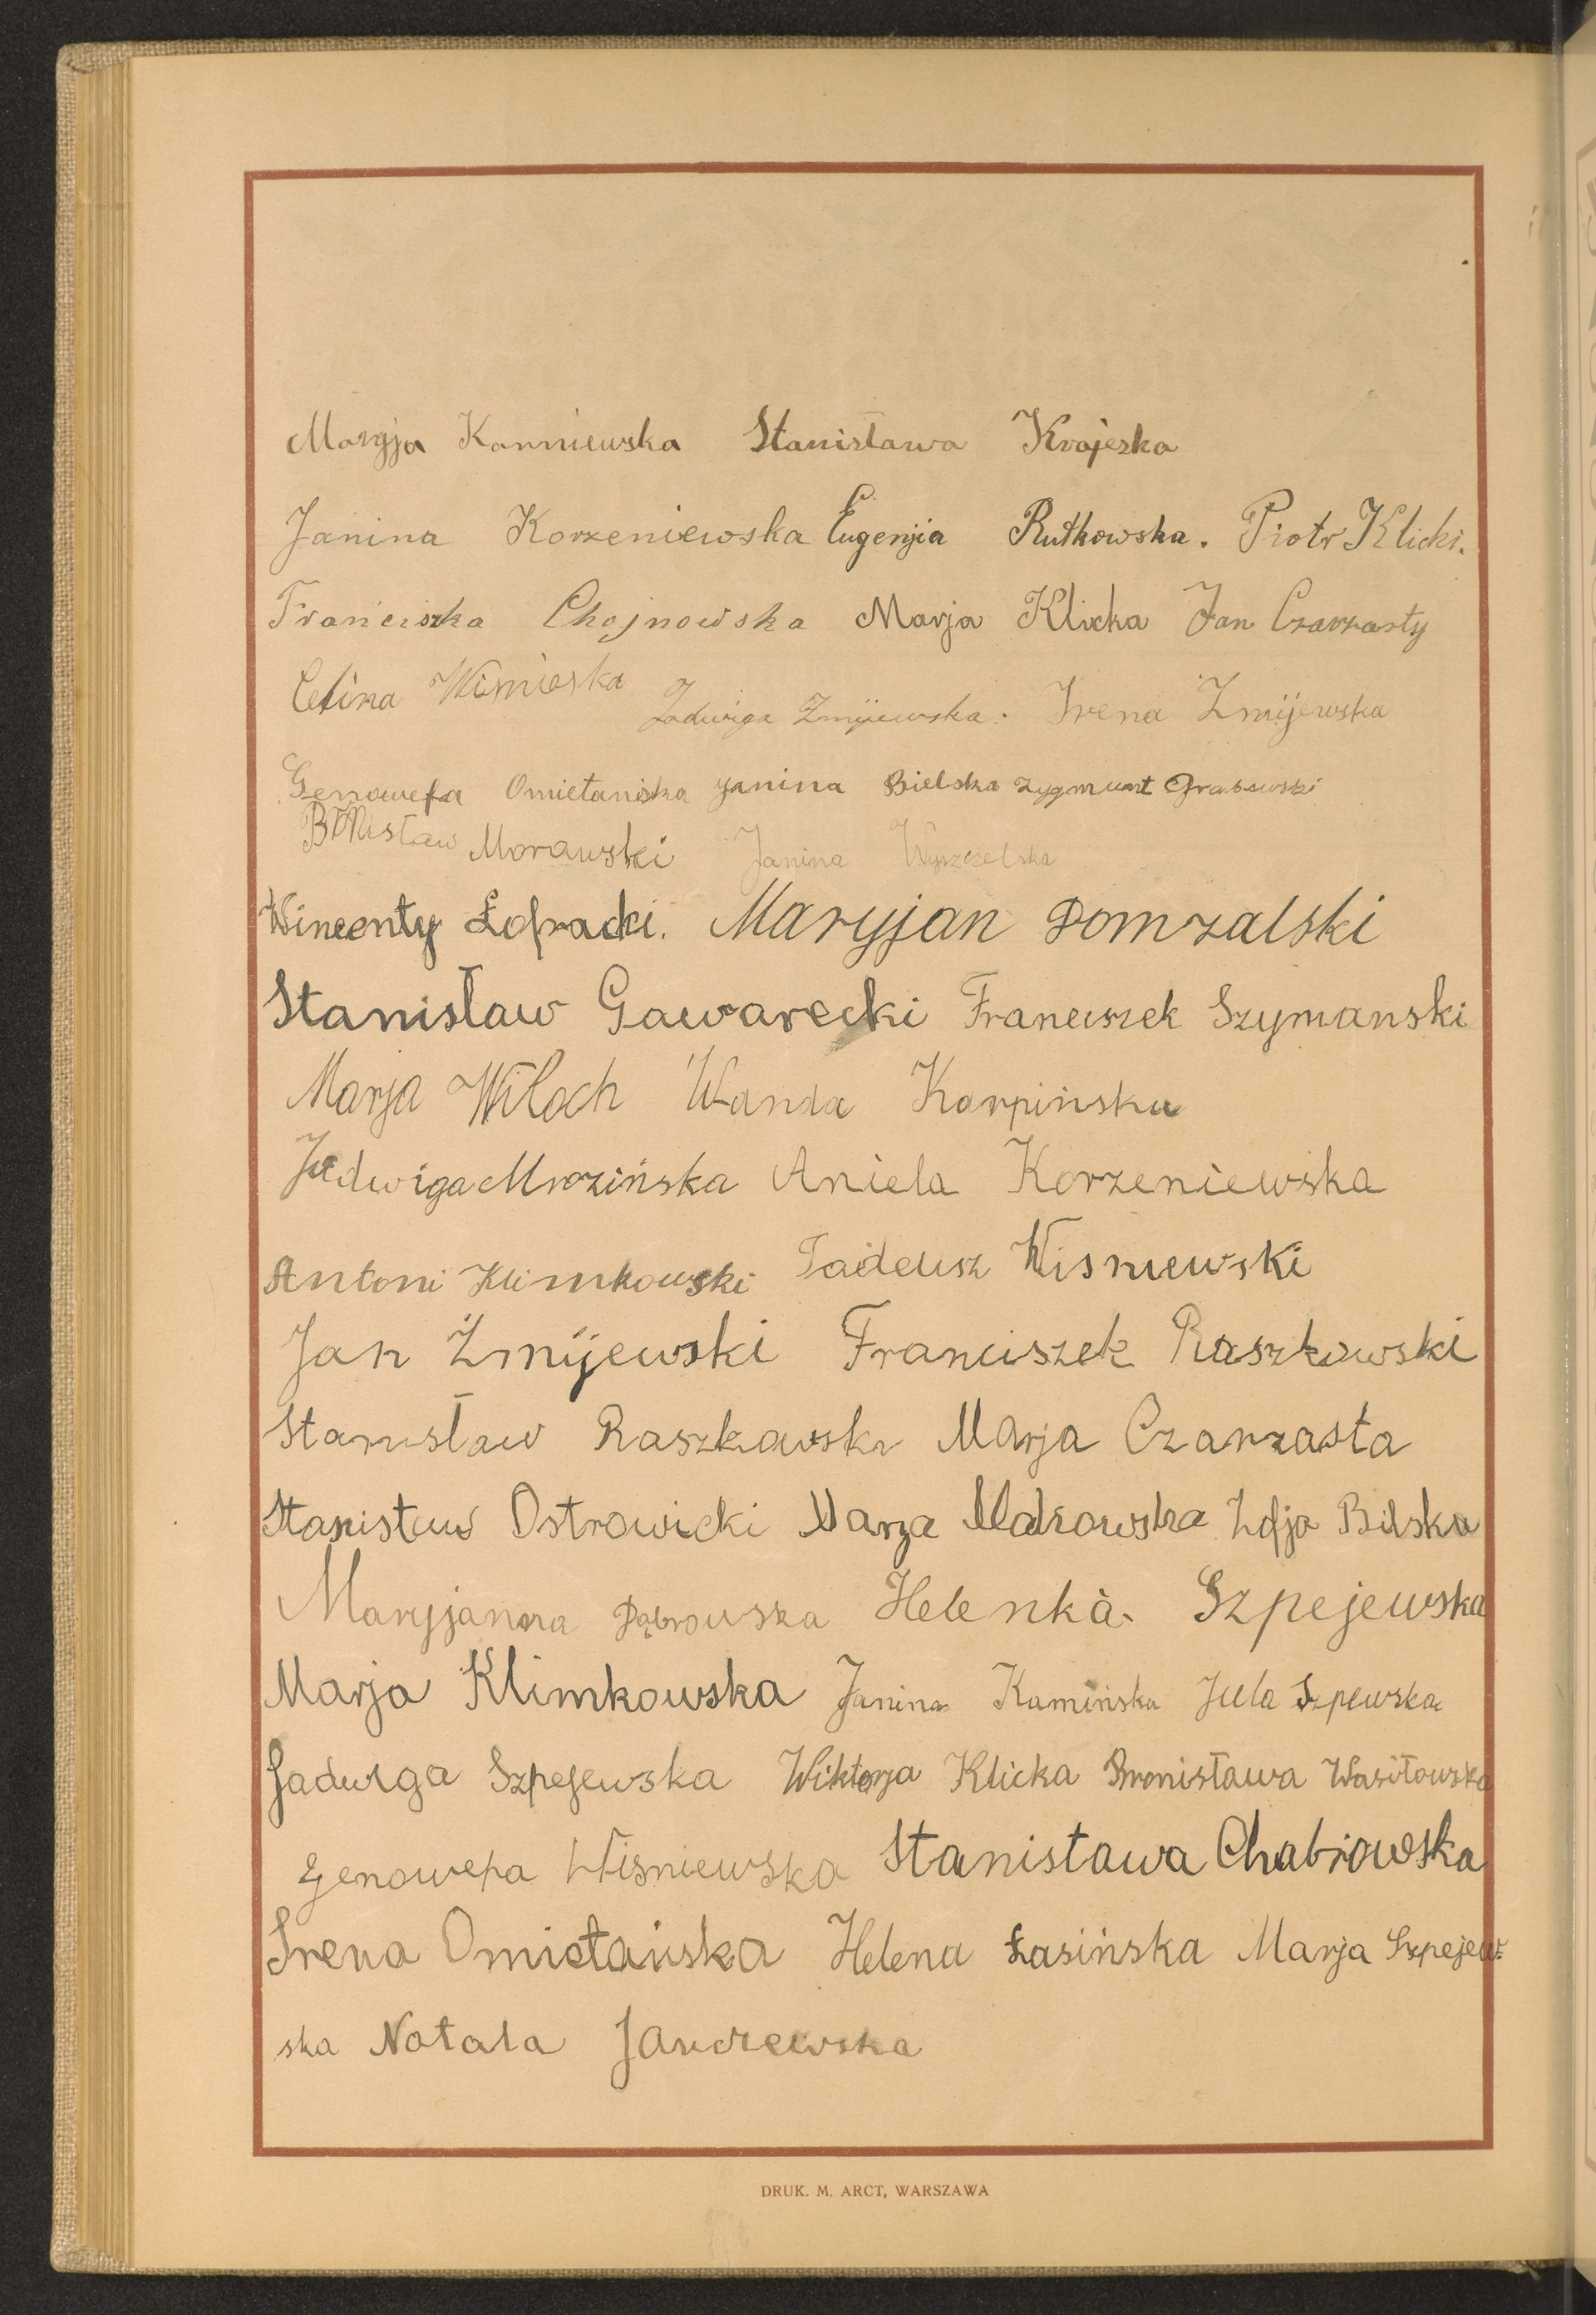 Maryja Karniewska Stanisława Krajeska
Janina Korzeniewska Eugenjia Rutkowska. Piotr Klicki.
Franciszka Chojnowska Marja Klicka Jan Czarzasty
Celina Wiśnieska Jadwiga Zmijewska. Irena Zmijewska
Genowefa Omietaniska Janina Bielska Zygmunt Grabowski
Bronisław Morawski Janina Wyszczelska
Wincenty Maryjan Domzalski
Stanisław Gawarecki Franciszek Szymanski
Marja Włoch Wanda Karpińska
Jadwiga Mrozińska Aniela Korzeniewska
Antoni Klimkowski Tadeusz Wisniewski
Jan Żmijewski Franciszek Raszkowski
Stanisław Raszkowski Marja Czarzasta
Stanisław Ostrowicki Zofja Bilska
Maryjanna Dąbrowska Helenka. Szpejewska
Marja Klimkowska Janina Kamińska Jula Szpewska
Jadwiga Szpejewska Wiktorja Klicka Bronisława Wasiłowska
Genowefa Wiśniewska Stanisława Chabrowska
Irena Omietańska Helena Łasińska Marja Szpejew-
ska Natala Janczewska
DRUK. M. ARCT, WARSZAWA